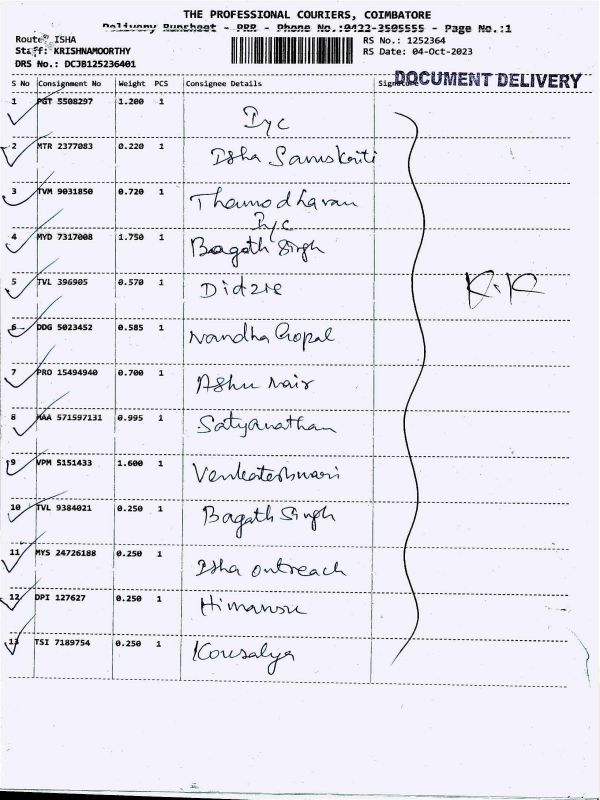 THE PROFESSIONAL COURIERS, COIMBATORE
Delivery Runsheet - PRR - Phone No.:0422-3505555 - Page No.:1
Route: ISHA
RS No.: 1252364
Staff: KRISHNAMOORTHY
RS Date: 04-Oct-2023
DRS No.: DCJB125236401
DOCUMENT DELIVERY
S No Consignment No Weight PCS Consignee Details Signature
1 PGT 5508297 1.200 1 Iyc
2 MTR 2377083 0.220 1 Isha Samskriti
3 TVM 9031850 0.720 1 Thamodharan
Iyc
4 MYD 7317008 1.750 1 Bagath Singh
5 TVL 396905 0.570 1
K.K
6 DDG 5023452 0.585 1 Nandha Gopal
7 PRO 15494940 0.700 1 Ashu Nair
8 MAA 571597131 0.995 1 Satyanathan
9 VPM 5151433 1.600 1 Venkateshwari
10 TVL 9384021 0.250 1 Bagath Singh
11 MYS 24726188 0.250 1 Isha outreach
12 DPI 127627 0.250 1 Himansu
13 TSI 7189754 0.250 1 Kousalya